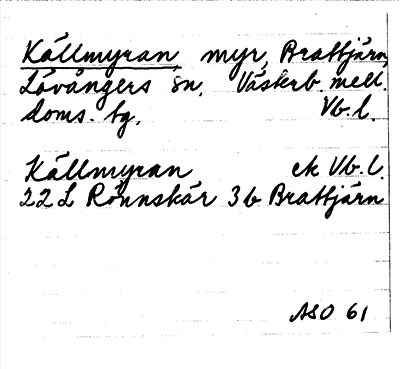 Källmyran, myr, Brattjärn,
Lövångers sn. Västerb. mell.
doms. tg. Vb. l.
Källmyran ek Vb. l.
22 L Rönnskär 3b Brattjärn
ASO 61